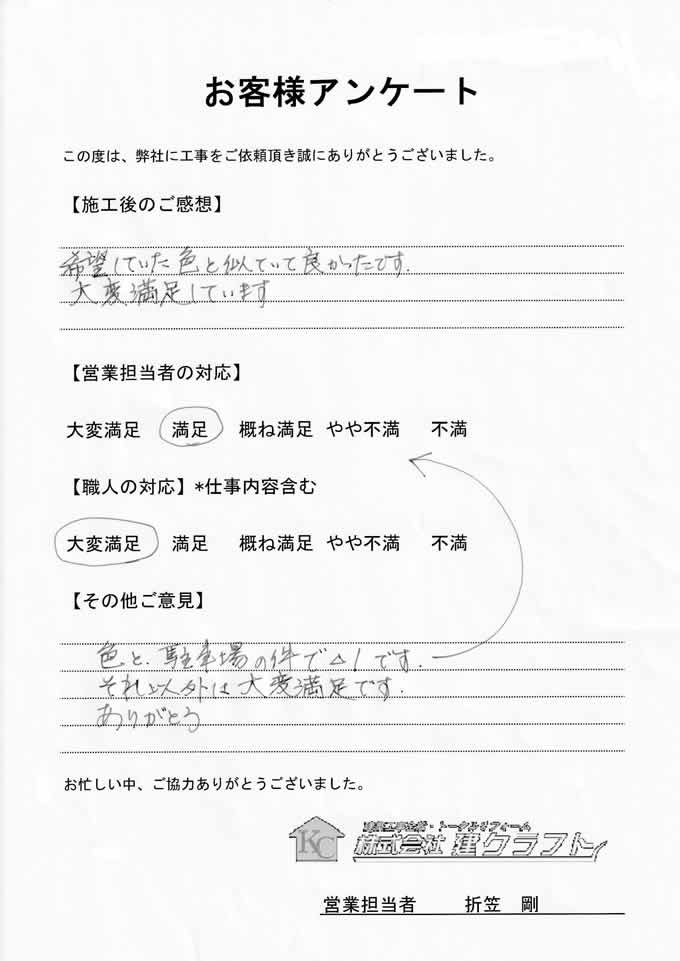 お客様アンケート
この度は、弊社に工事をご依頼頂き誠にありがとうございました。
【施工後のご感想】
希望していた色と似ていて良かったです.
大変満足しています
【営業担当者の対応】
大変満足 満足 概ね満足 やや不満 不満
【職人の対応】*仕事内容含む
大変満足 満足 概ね満足 やや不満 不満
【その他ご意見】
色と、駐車場の件で△1です.
それ以外は大変満足です.
ありがとう
お忙しい中、ご協力ありがとうございました。
KC
トータルリフォーム
株式会社 建クラフト
営業担当者 折笠 剛